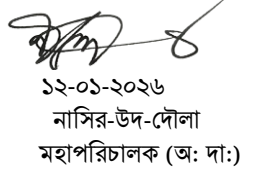 ১২-০১-২০২৬
নাসির-উদ-দৌলা
মহাপরিচালক (অ: দা:)